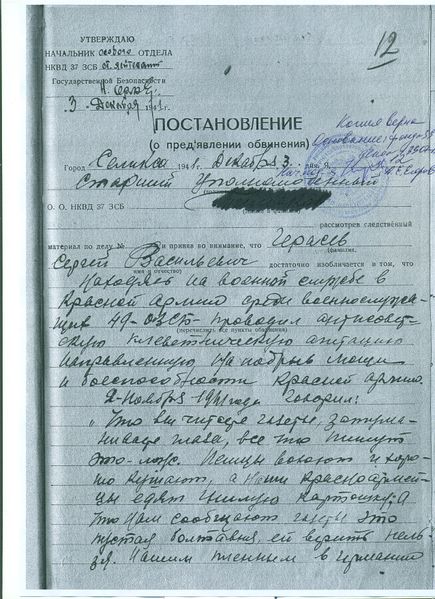 УТВЕРЖДАЮ
12
НАЧАЛЬНИК особого ОТДЕЛА
НКВД 37 ЗСБ ст. лейтенант
Государственной Безопасности
3 Декабря 1941 г.
Копия верна
ПОСТАНОВЛЕНИЕ
(о предъявлении обвинения)
Город Селикса 1941 г. Декабря 3 дня. Я,
Старший Уполномоченный
О. О. НКВД 37 ЗСБ
рассмотрев следственный
материал по делу № и приняв во внимание, что Герасев
(фамилия,
Сергей Васильевич достаточно изобличается в том, что
имя и отчество)
Находясь на военной службе в
Красной Армии среди военнослужа-
щих 49-ОЗСП- проводил антисовет-
(перечислить все пункты обвинения)
скую клеветническую агитацию
направленную на подрыв мощи
и боеспособности Красной армии.
2-Ноября 1941 года говорил:
"Что вы читаете газеты, затума-
ниваете глаза, все что пишут
это-ложь. Немцы воюют и хоро-
шо кушают, а наши красноармей-
цы едят гнилую картошку. А
что нам сообщают газеты это
пустая болтавня, ей верить нель-
зя. Нашим пленным в Германии